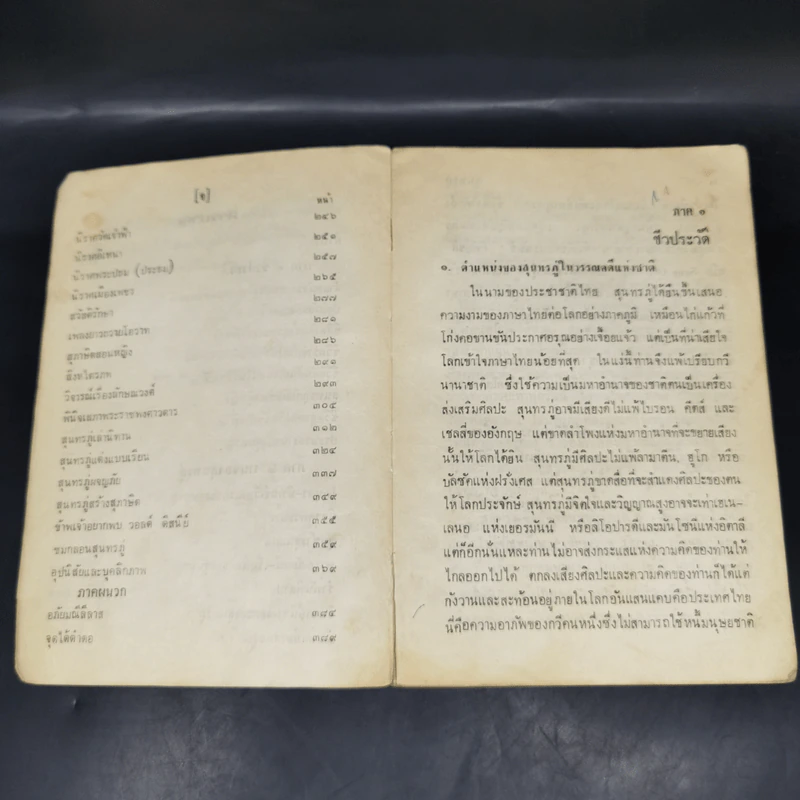 [จ]
หน้า
นิราศวัดเจ้าฟ้า ๒๔๖
นิราศอิเหนา ๒๕๑
นิราศพระปธม (ประธม) ๒๕๗
นิราศเมืองเพชร ๒๖๕
สวัสดิรักษา ๒๗๗
เพลงยาวถวายโอวาท ๒๘๑
สุภาษิตสอนหญิง ๒๘๖
สิงหไตรภพ ๒๙๑
วิจารณ์เรื่องลักษณวงศ์ ๒๙๓
พินิจเสภาพระราชพงศาวดาร ๓๐๔
สุนทรภู่เล่านิทาน ๓๑๒
สุนทรภู่แต่งแบบเรียน ๓๒๔
สุนทรภู่ผจญภัย ๓๓๗
สุนทรภู่สร้างสุภาษิต ๓๔๙
ข้าพเจ้าอยากพบ วอลต์ ดิสนีย์ ๓๕๕
ชมกลอนสุนทรภู่ ๓๕๙
อุปนิสัยและบุคลิกภาพ ๓๖๙
ภาคผนวก
อภัยมณีลีลาช ๓๘๔
จุดใต้ตำตอ ๓๘๙
ภาค ๑
ชีวประวัติ
๑. ตำแหน่งของสุนทรภู่ในวรรณคดีแห่งชาติ
ในนามของประชาชาติไทย สุนทรภู่ได้ยืนขึ้นเสนอ
ความงามของภาษาไทยต่อโลกอย่างภาคภูมิ เหมือนไก่แก้วที่
โก่งคอขานขันประกาศอรุณอย่างเจื้อยแจ้ว แต่เป็นที่น่าเสียใจ
โลกเข้าใจภาษาไทยน้อยที่สุด ในแง่นี้ท่านจึงแพ้เปรียบกวี
นานาชาติ ซึ่งใช้ความเป็นมหาอำนาจของชาติตนเป็นเครื่อง
ส่งเสริมศิลปะ สุนทรภู่อาจมีเสียงดีไม่แพ้ไบรอน คีตส์ และ
เชลลีของอังกฤษ แต่ขาดลำโพงแห่งมหาอำนาจที่จะขยายเสียง
นั้นให้โลกได้ยิน สุนทรภู่มีศิลปะไม่แพ้ลามาตีน, ฮูโก หรือ
บัลซัคแห่งฝรั่งเศส แต่สุนทรภู่ขาดสื่อที่จะสำแดงศิลปะของตน
ให้โลกประจักษ์ สุนทรภู่มีจิตใจและวิญญาณสูงอาจจะเท่าเฮเน-
เลนอ แห่งเยอรมันนี หรือลิโอปารดีและมันโซนีแห่งอิตาลี
แต่ก็อีกนั่นแหละท่านไม่อาจส่งกระแสแห่งความคิดของท่านให้
ไกลออกไปได้ ตกลงเสียงศิลปะและความคิดของท่านก็ได้แต่
กังวานและสะท้อนอยู่ภายในโลกอันแสนแคบคือประเทศไทย
นี่คือความอาภัพของกวีคนหนึ่งซึ่งไม่สามารถใช้หนี้มนุษยชาติ